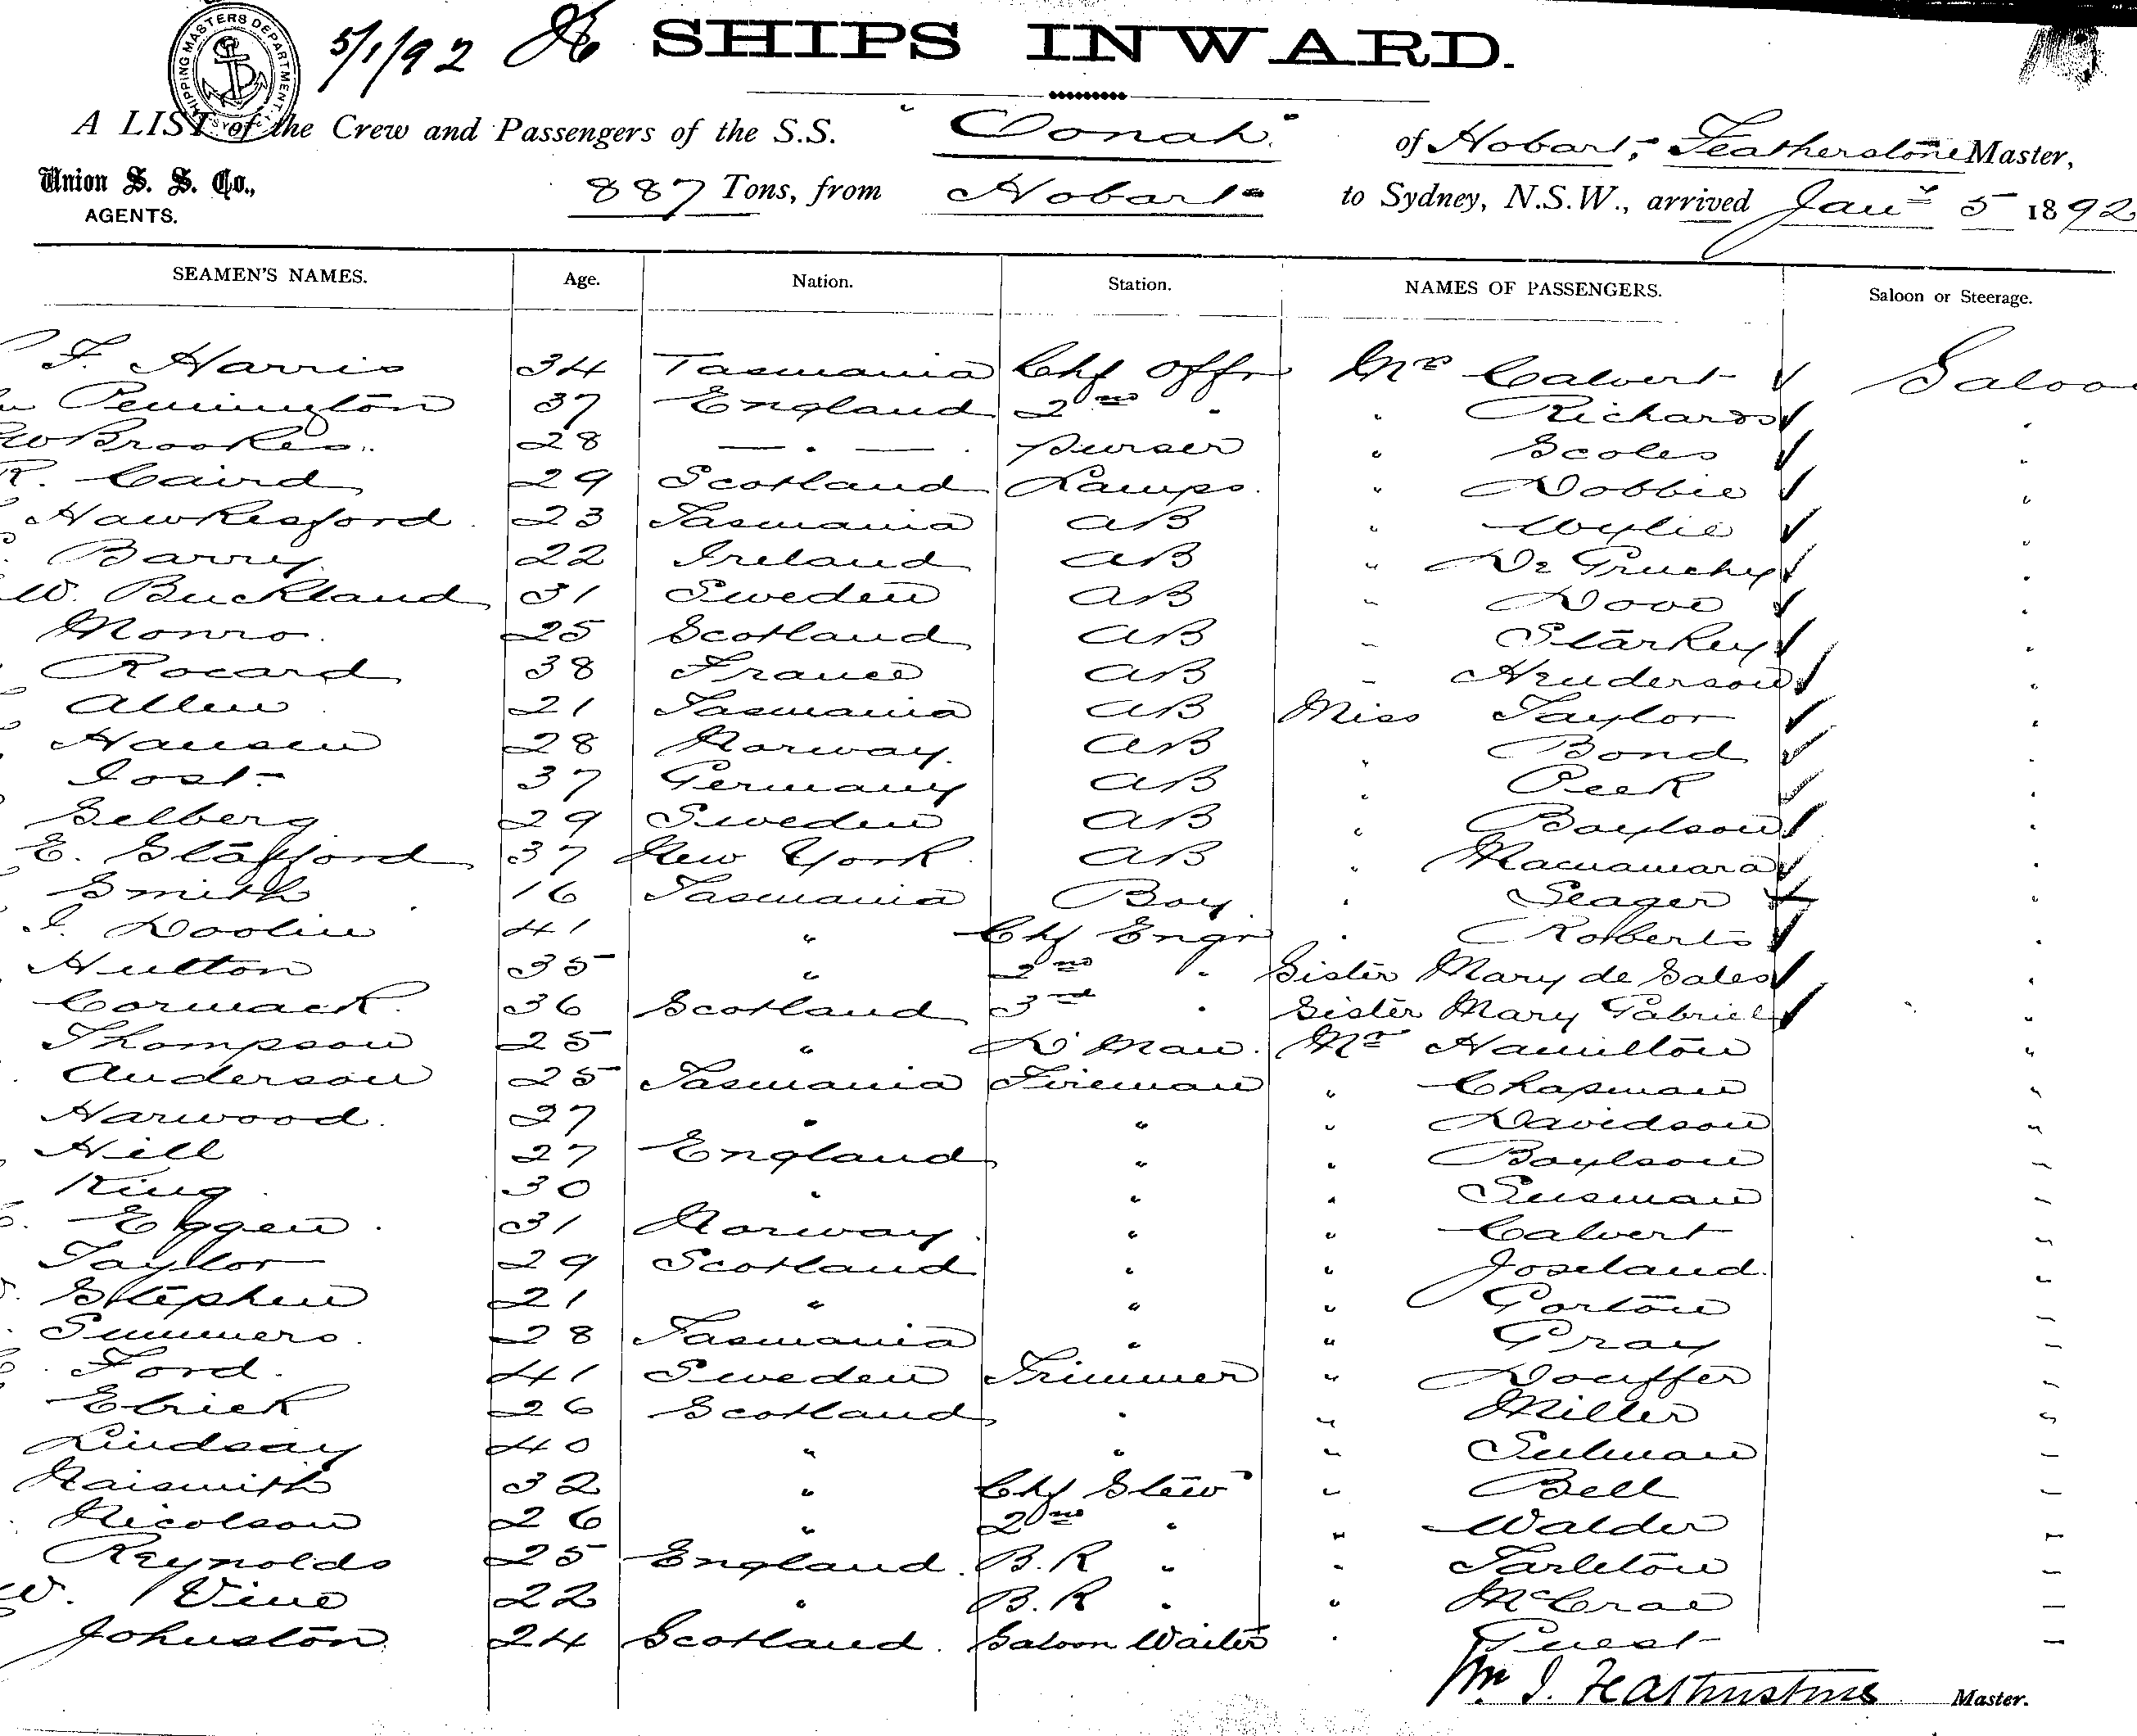 SHIPPING MASTERS DEPARTMENT. SYDNEY
5/1/92 SHIPS INWARD.
A LIST of the Crew and Passengers of the S.S. "Oonah" of Hobart, Featherstone Master,
Union S. S. Co., AGENTS. 887 Tons, from Hobart to Sydney, N.S.W., arrived Jany 5 1892
SEAMEN'S NAMES. Age. Nation. Station. NAMES OF PASSENGERS. Saloon or Steerage.
F. Harris 34 Tasmania Chf Offr Mrs Calvert ✓ Saloo
Pennington 37 England 2nd " " Richards ✓ "
W Brookes 28 — " — purser " Scoles ✓ "
R. Caird 29 Scotland Lamps. " Dobbie ✓ "
Hawkesford 23 Tasmania AB " Wylie ✓ "
Barry 22 Ireland AB " De Gruchy ✓ "
W. Buckland 31 Sweden AB " Dove ✓ "
Monro. 25 Scotland AB " Starkey ✓ "
Rocard 38 France AB " Henderson ✓ "
Allen 21 Tasmania AB Miss Taylor ✓ "
Hansen 28 Norway. AB " Bond ✓ "
Jost 37 Germany AB " Peek ✓ "
Selberg 29 Sweden AB " Boylson ✓ "
E. Stafford 37 New York AB " Macnamara ✓ "
Smith 16 Tasmania Boy " Seager ✓ "
I. Doolin 41 " Chf Engr " Roberts ✓ "
Hutton 35 " 2nd " Sister Mary de Sales ✓ "
Cormack. 36 Scotland 3rd " Sister Mary Gabriel ✓ "
Thompson 25 " D'Man. Mr Hamilton "
Anderson 25 Tasmania Fireman " Chapman "
Harwood. 27 " " " Davidson "
Hill 27 England " " Boylson "
King. 30 " " " Susman "
Eggen. 31 Norway. " " Calvert "
Taylor 29 Scotland " " Joseland. "
Stephen 21 " " " Gorton "
Summers. 28 Tasmania " " Gray "
Ford. 41 Sweden Trimmer " Douffer "
Elrick 26 Scotland " " Miller "
Lindsay 40 " " " Sulman "
Naismith 32 " Chf Stew " Bell "
Nicolson 26 " 2nd " " Walder "
Reynolds 25 England. B.R " " Tarleton "
W. Vine 22 " B.R " " McCrae "
Johnston 24 Scotland. Saloon Waiter " Guest "
Wm J. Featherstone Master.